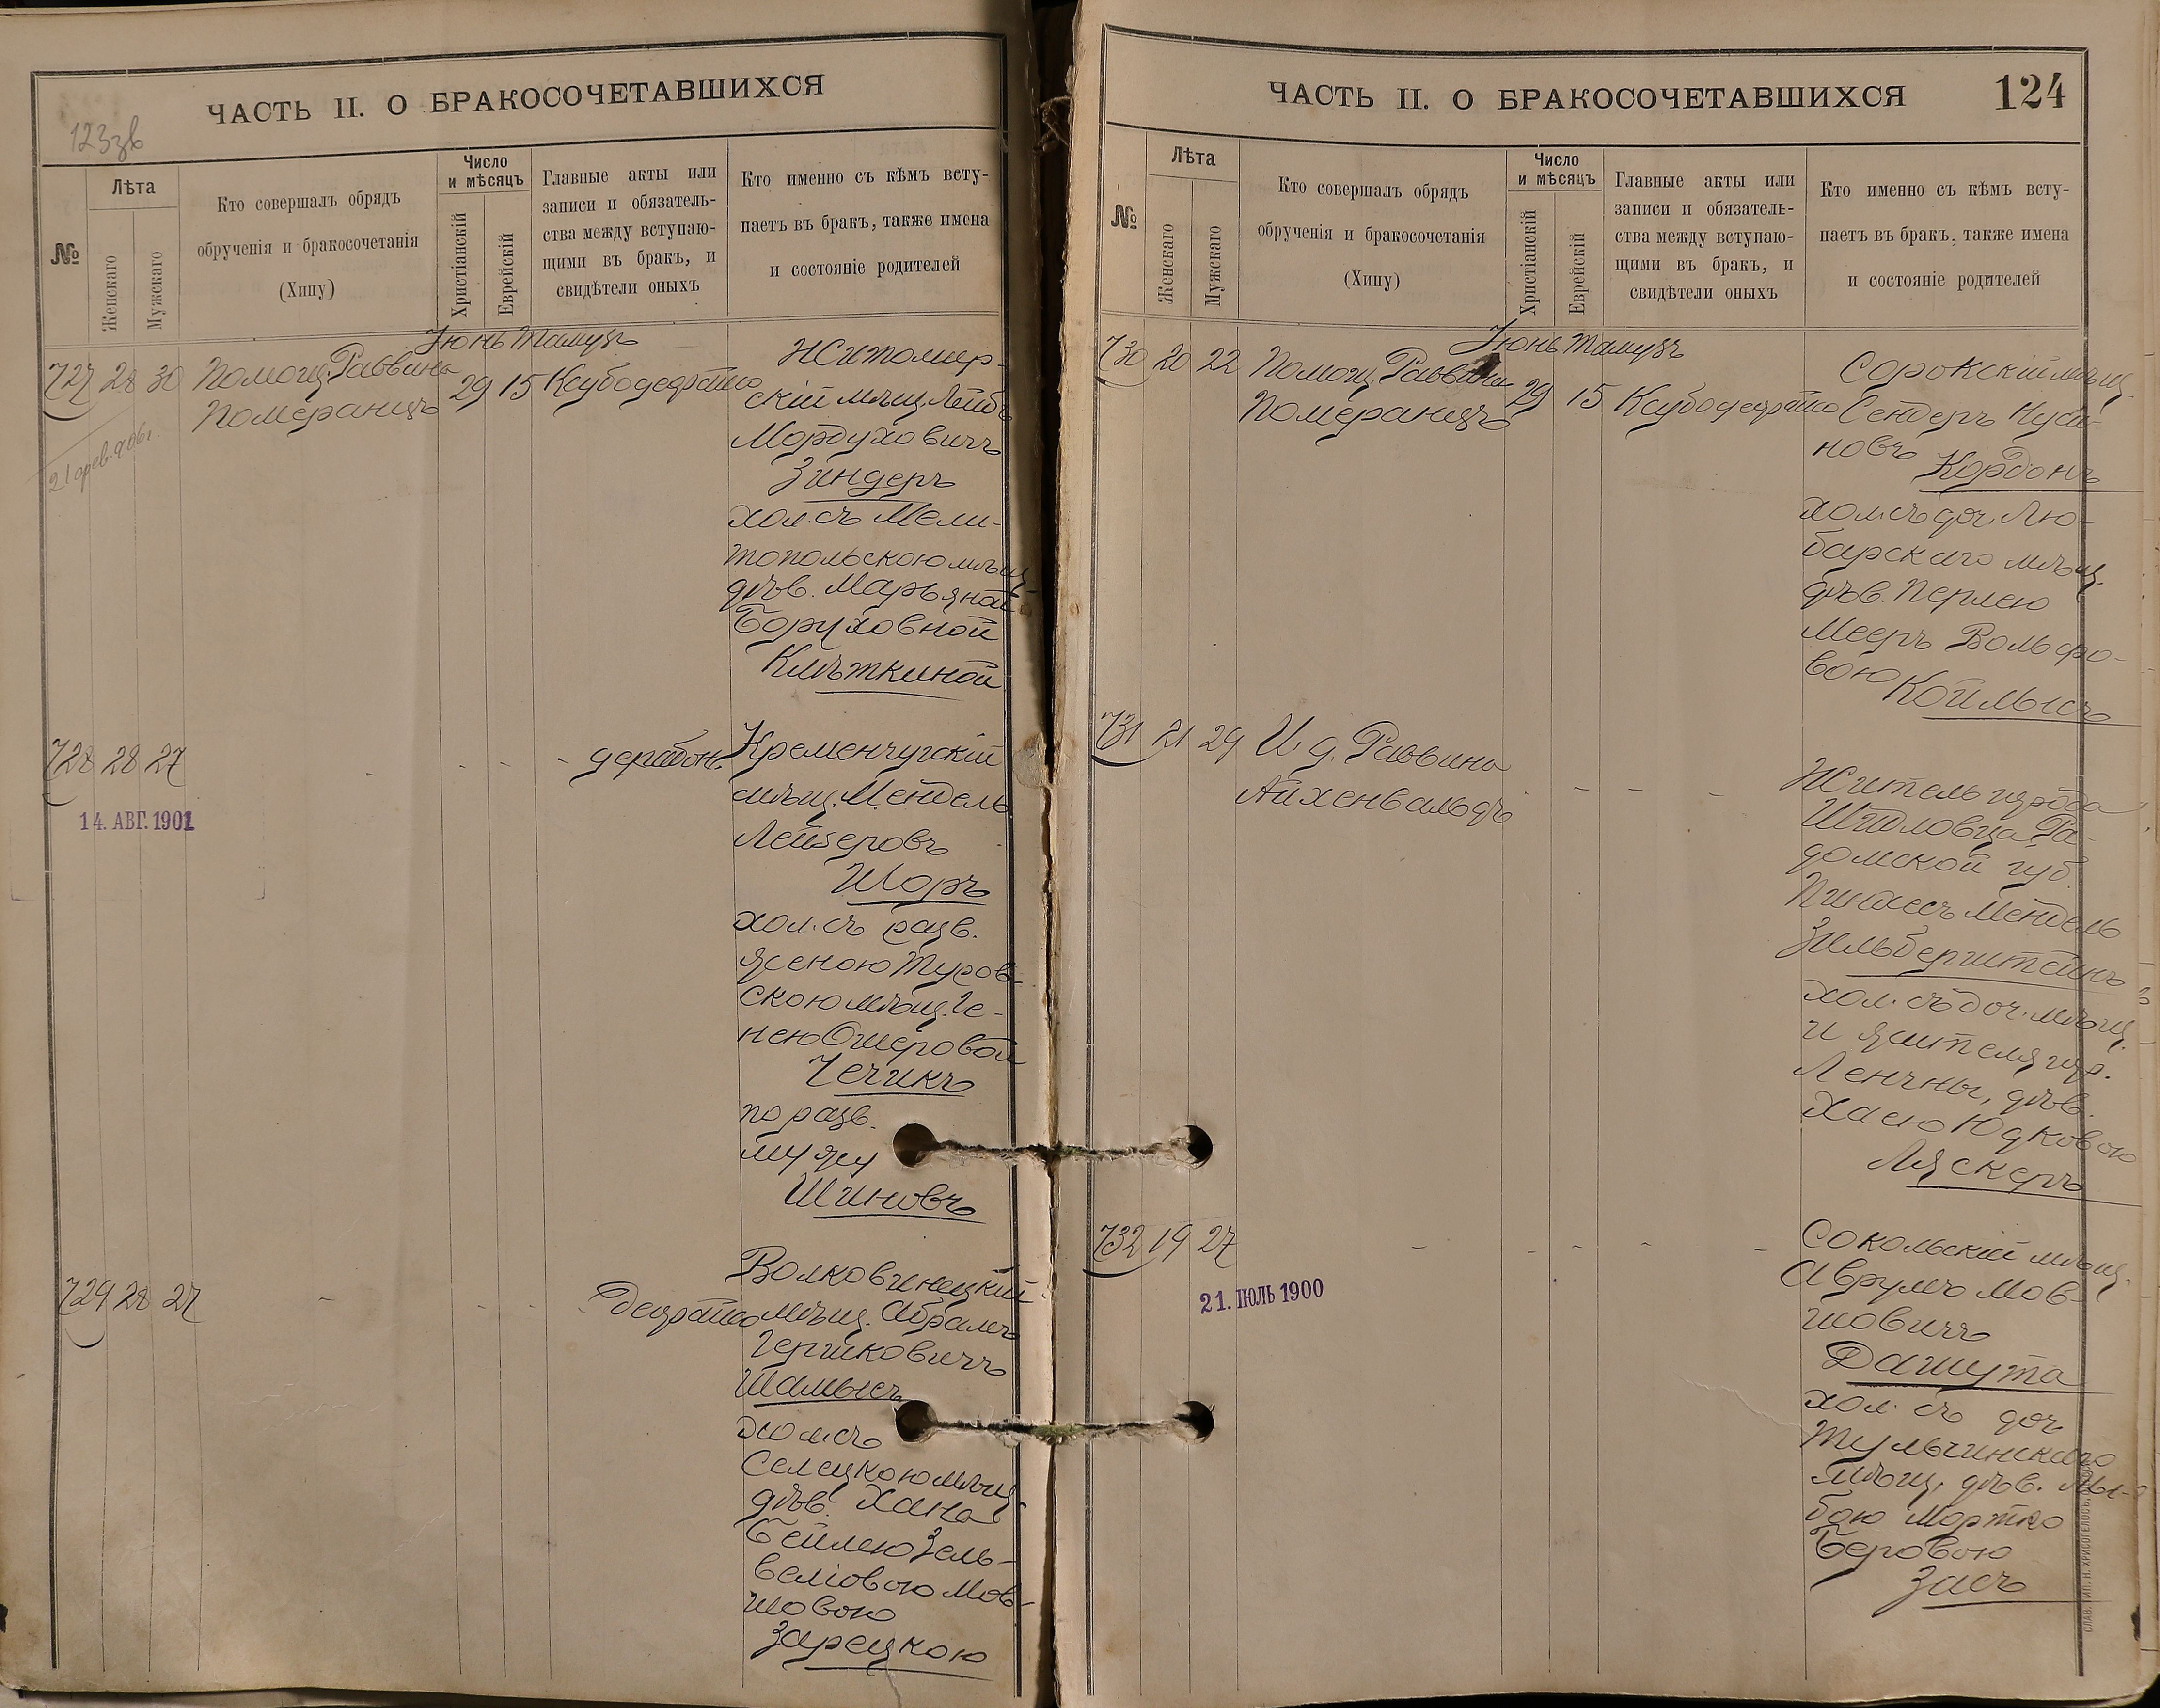 ЧАСТЬ II. О БРАКОСОЧЕТАВШИХСЯ
123зв
№
Лѣта
Женскаго
Мужскаго
Кто совершалъ обрядъ
обрученія и бракосочетанія
(Хипу)
Число
и мѣсяцъ
Христіанскій
Еврейскій
Главные акты или
записи и обязатель-
ства между вступаю-
щими въ бракъ, и
свидѣтели оныхъ
Кто именно съ кѣмъ всту-
паетъ въ бракъ, также имена
и состояніе родителей
Іюнь Тамузъ
727 28 30 Помощ. Раввина
Померанцъ
29 15
Житомир-
скій мѣщ. Лейбъ
Мордуховичъ
Зиндеръ
хол. съ Мели-
топольскою мѣщ.
дѣв. Марьяной
Боруховной
Клѣткиной
728 28 27
14. АВГ. 1901
Кременчугскій
мѣщ. Мендель
Лейзеровъ
Шоръ
хол. съ разв.
женою Туров-
скою мѣщ. Ге-
нею Ошеровой
Чечикъ
по разв.
мужу
Шиновъ
729 28 27
Волковинецкій
мѣщ. Абрамъ
Гершковичъ
Шамысъ
хол. съ
Селецкою мѣщ.
дѣв. Хана
Бейлею Зель-
веліовою Мов-
шовою
Зарецкою
ЧАСТЬ II. О БРАКОСОЧЕТАВШИХСЯ
124
№
Лѣта
Женскаго
Мужскаго
Кто совершалъ обрядъ
обрученія и бракосочетанія
(Хипу)
Число
и мѣсяцъ
Христіанскій
Еврейскій
Главные акты или
записи и обязатель-
ства между вступаю-
щими въ бракъ, и
свидѣтели оныхъ
Кто именно съ кѣмъ всту-
паетъ въ бракъ, также имена
и состояніе родителей
Іюнь Тамузъ
730 20 22 Помощ. Раввина
Померанцъ
29 15
Сорокскій мѣщ.
Сендеръ Нуси-
новъ Кордонъ
хол. съ доч. Лю-
барскаго мѣщ.
дѣв. Перлею
Мееръ Вольфо-
вою Коймысъ
731 21 29 И. д. Раввина
Айхенвальдъ
Житель города
Шидловца Ра-
домской губ.
Пинхесъ Мендель
Зильберштейнъ
хол. съ доч. мѣщ.
и жителя гор.
Ленчны, дѣв.
Хаею Юдковою
Ляскеръ
732 19 27
21. ІЮЛЬ 1900
Сокольскій мѣщ.
Аврумъ Мов-
шовичъ
Дашута
хол. съ доч
Тульчинскаго
мѣщ. дѣв.
бою Мортко
Беровою
Засъ